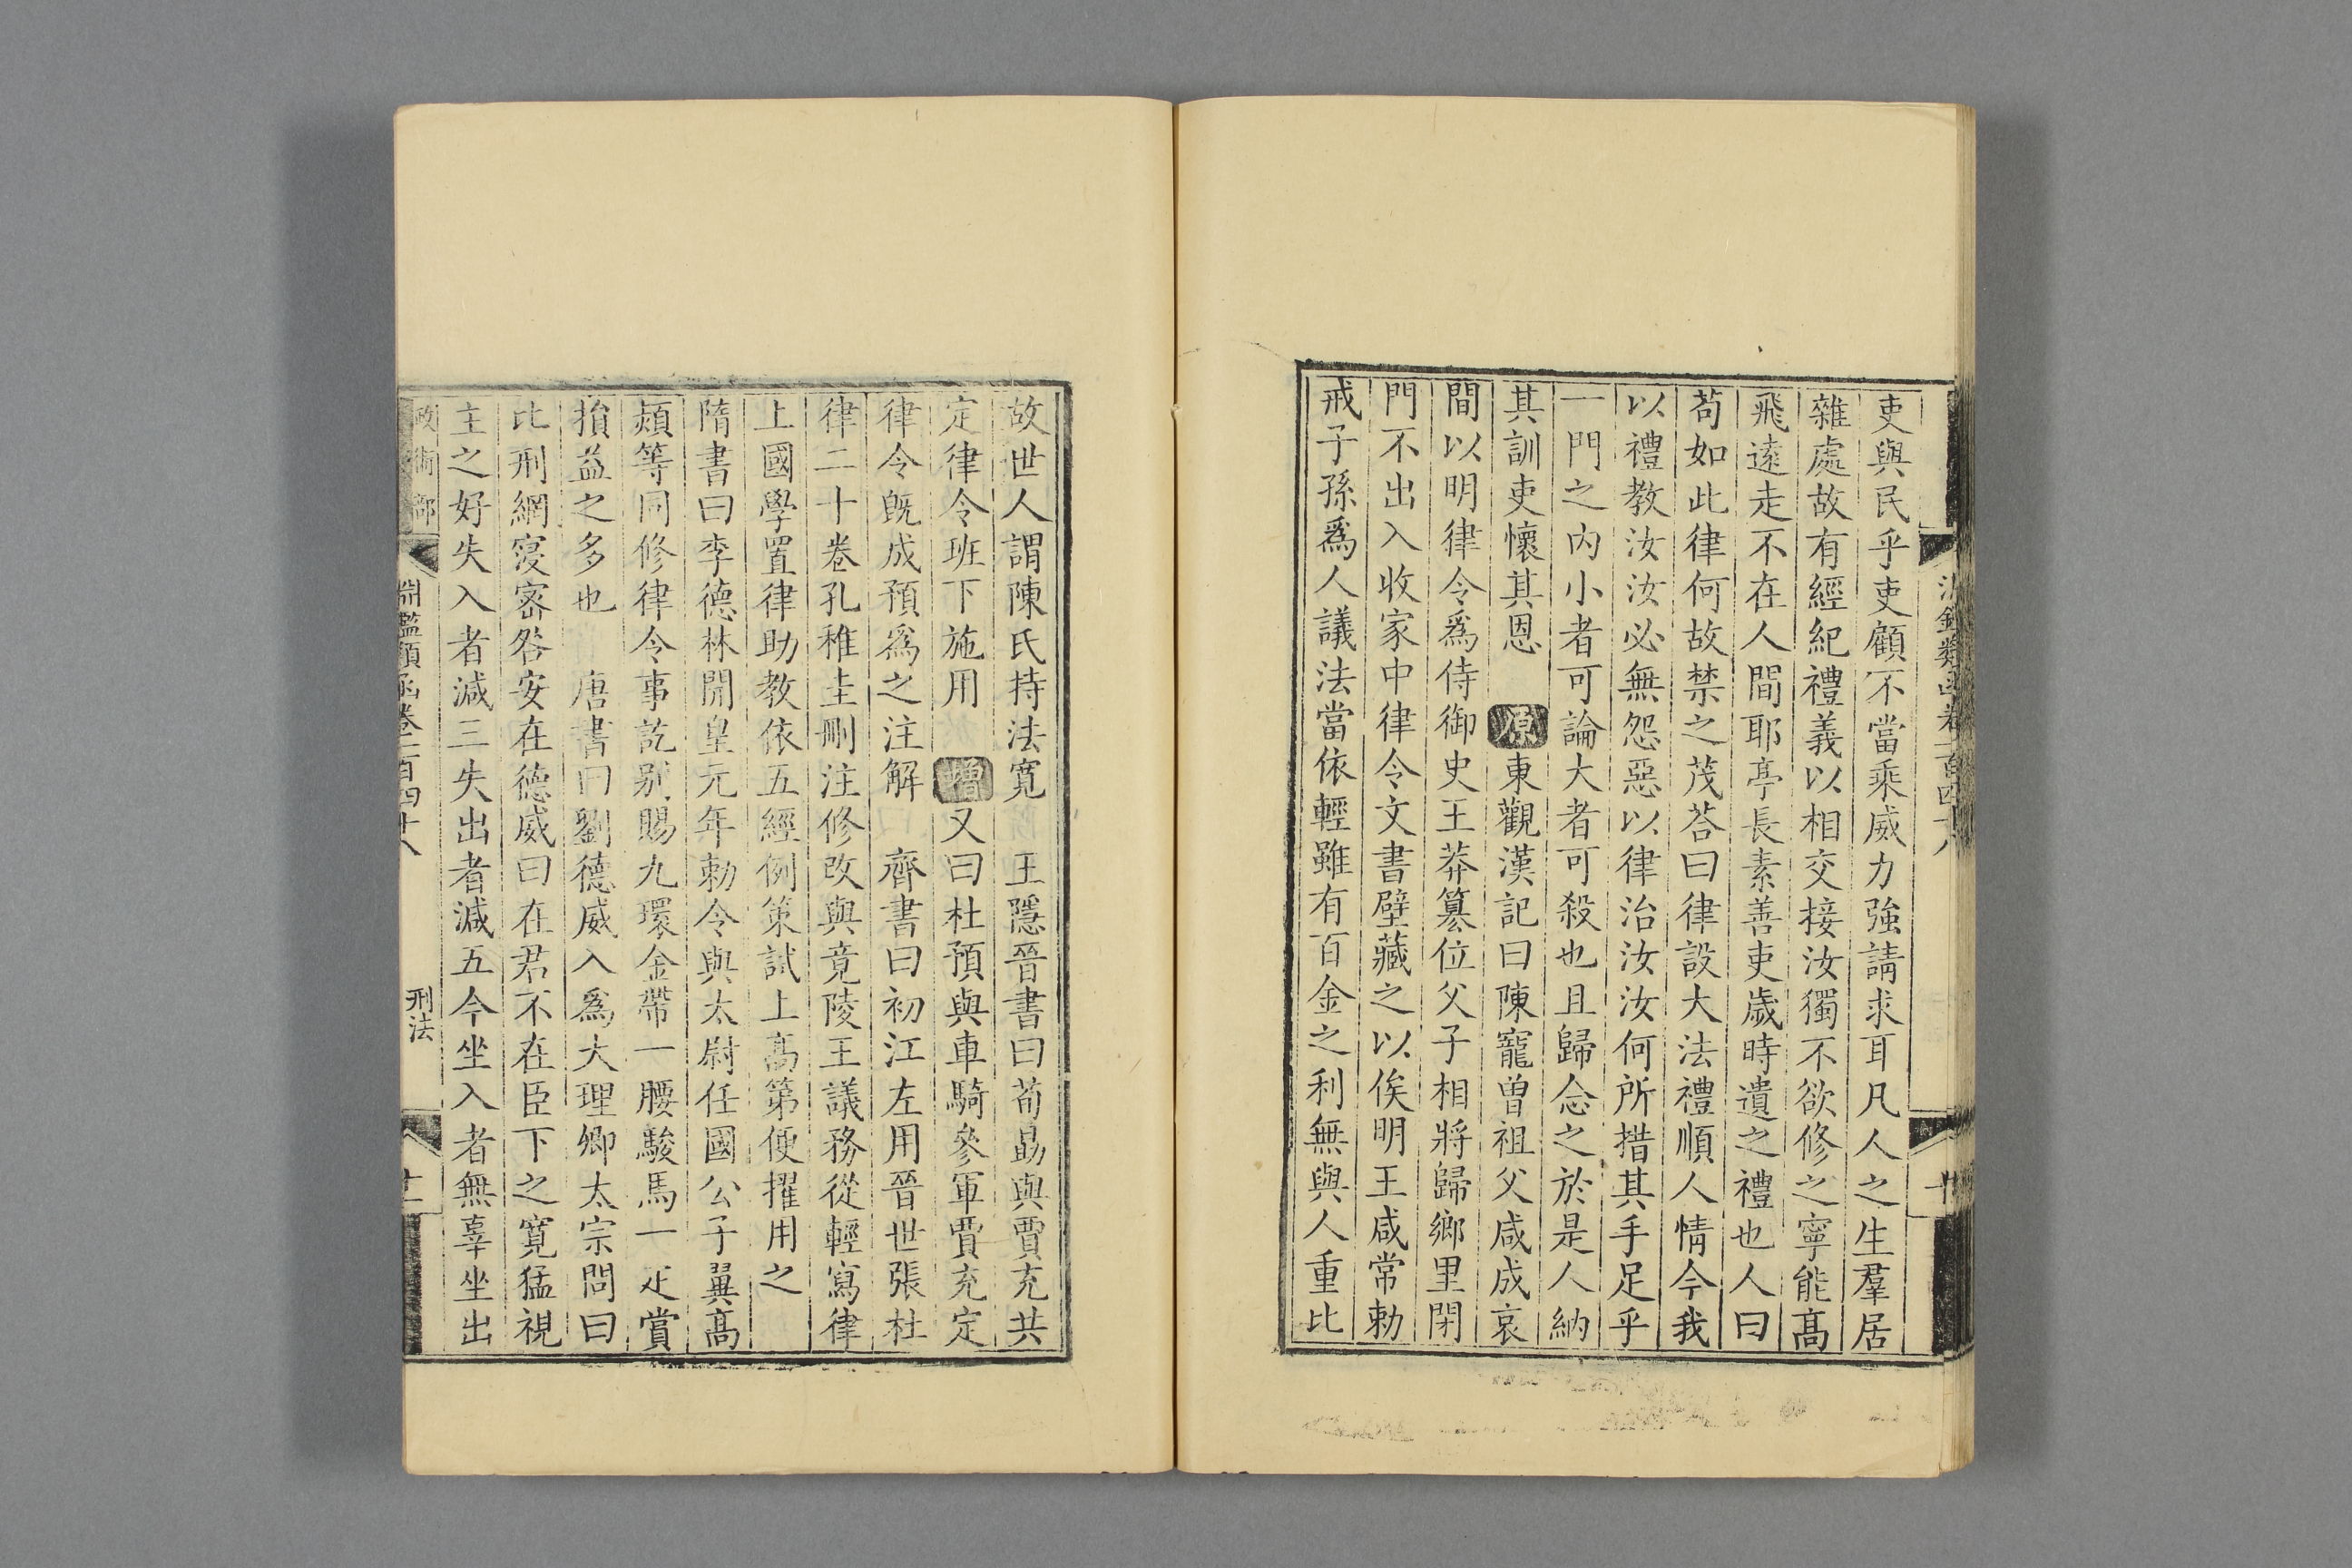 吏與民乎吏顧不當乘威力強請求耳凡人之生羣居
雜處故有經紀禮義以相交接汝獨不欲修之寧能髙
飛遠走不在人間耶亭長素善吏歲時遺之禮也人曰
苟如此律何故禁之茂荅曰律設大法禮順人情今我
以禮教汝汝必無怨惡以律治汝汝何所措其手足乎
一門之内小者可論大者可殺也且歸念之於是人納
其訓吏懷其恩 原東觀漢記曰陳寵曽祖父咸成哀
間以明律令爲侍御史王莽簒位父子相將歸鄉里閉
門不出入收家中律令文書壁藏之以俟明王咸常勅
戒子孫爲人議法當依輕雖有百金之利無與人重比
故世人謂陳氏持法寛 王隱晉書曰荀勗與賈充共
定律令班下施用 增又曰杜預與車騎參軍賈充定
律令既成預爲之注解 齊書曰初江左用晉世張杜
律二十卷孔稚圭刪注修改與竟陵王議務從輕寫律
上國學置律助教依五經例策試上髙第便擢用之
隋書曰李德林開皇元年勅令與太尉任國公于翼髙
熲等同修律令事訖别賜九環金帶一腰駿馬一疋賞
損益之多也 唐書曰劉德威入爲大理卿太宗問曰
比刑網寖密咎安在德威曰在君不在臣下之寛猛視
主之好失入者減三失出者減五今坐入者無辜坐出
政術部 淵鑑類函卷一百四十八 刑法 十一